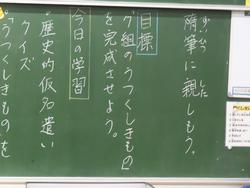 ずいひつ
した
随筆に親しもう。
目標
「7組のうつくしきもの」
を完成させよう。
今日の学習
・歴史的仮名遣い
クイズ
うつくしきものを